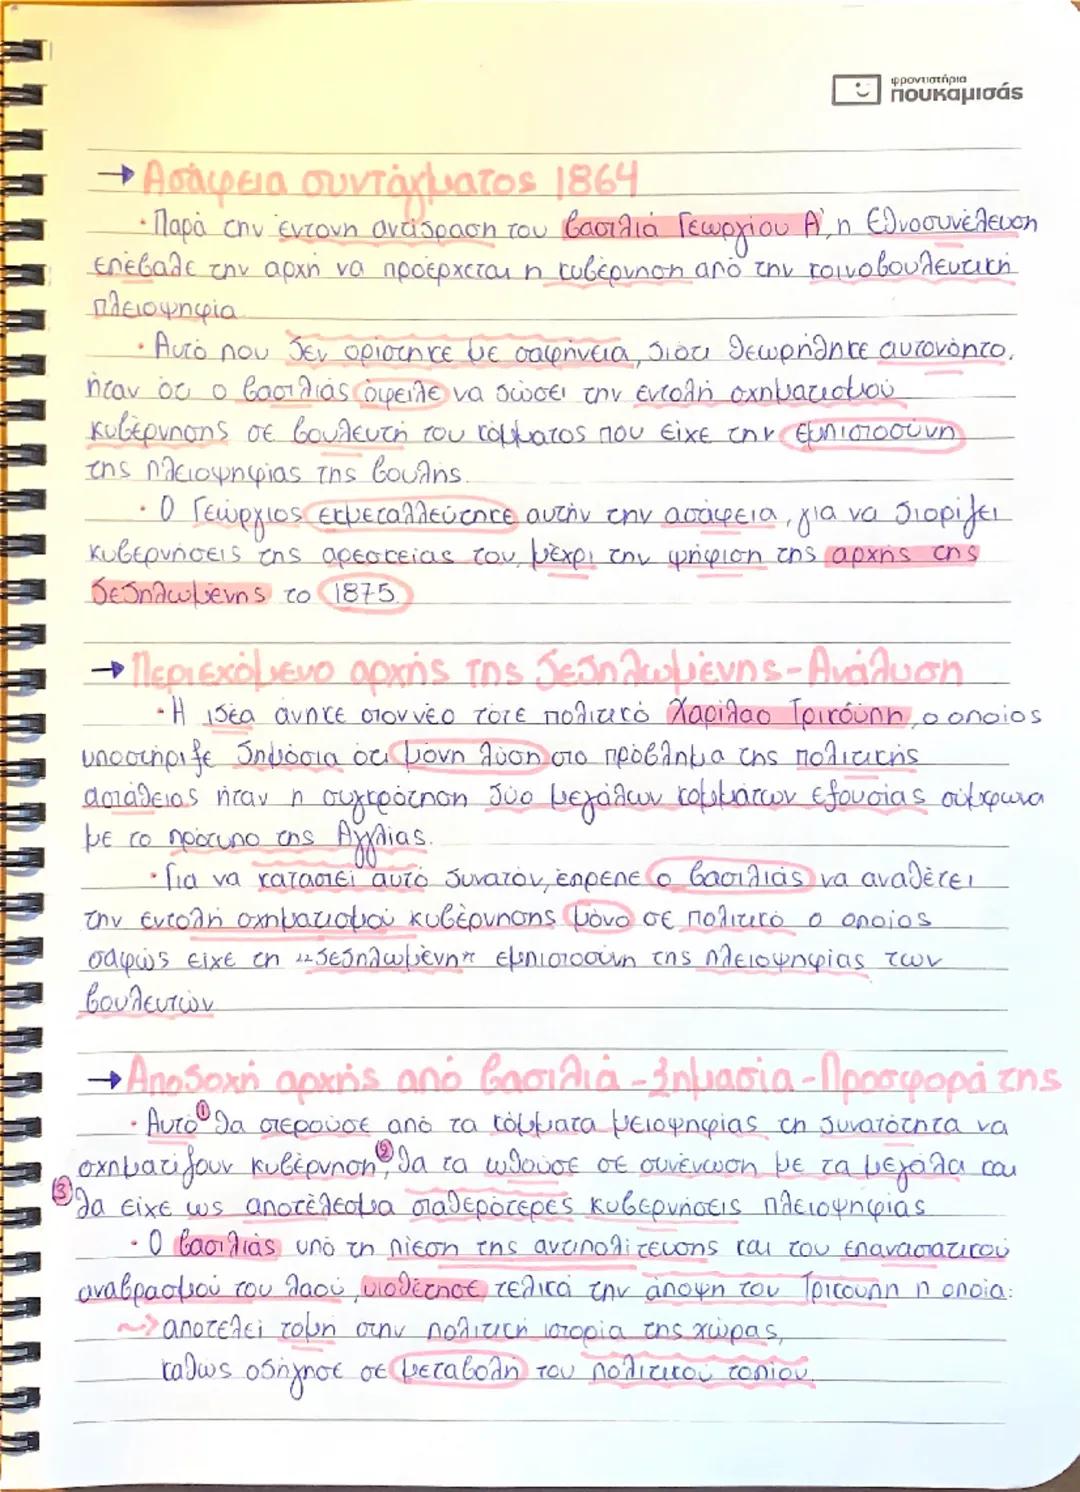 φροντιστήρια
πουκαμισάς
→ Ασάφεια συντάγματος 1864
· Παρά την έντονη αντίδραση του βασιλιά Γεωργίου Α', η Εθνοσυνέλευση
επέβαλε την αρχή να προέρχεται η κυβέρνηση από την κοινοβουλευτική
πλειοψηφία
· Αυτό που δεν ορίστηκε με σαφήνεια, διότι θεωρήθηκε αυτονόητο,
ήταν ότι ο βασιλιάς όφειλε να δώσει την εντολή σχηματισμού
κυβέρνησης σε βουλευτή του κόμματος που είχε την εμπιστοσύνη
της πλειοψηφίας της βουλής.
· Ο Γεώργιος εκμεταλλεύτηκε αυτήν την ασάφεια, για να διορίζει
κυβερνήσεις της αρεσκείας του, μέχρι την ψήφιση της αρχής της
δεδηλωμένης το 1875.
→ Περιεχόμενο αρχής της δεδηλωμένης - Ανάλυση
· Η ιδέα άνηκε στον νέο τότε πολιτικό Χαρίλαο Τρικούπη, ο οποίος
υποστήριξε δημόσια ότι μόνη λύση στο πρόβλημα της πολιτικής
αστάθειας ήταν η συγκρότηση δύο μεγάλων κομμάτων εξουσίας σύμφωνα
με το πρότυπο της Αγγλίας.
· Για να καταστεί αυτό δυνατόν, έπρεπε ο βασιλιάς να αναθέτει
την εντολή σχηματισμού κυβέρνησης μόνο σε πολιτικό ο οποίος
σαφώς είχε τη "δεδηλωμένη" εμπιστοσύνη της πλειοψηφίας των
βουλευτών
→ Αποδοχή αρχής από βασιλιά - Σημασία - Προσφορά της
· Αυτό ① θα στερούσε από τα κόμματα μειοψηφίας τη δυνατότητα να
σχηματίζουν κυβέρνηση, ② θα τα ωθούσε σε συνένωση με τα μεγάλα και
③ θα είχε ως αποτέλεσμα σταθερότερες κυβερνήσεις πλειοψηφίας
· Ο βασιλιάς υπό τη πίεση της αντιπολίτευσης και του επαναστατικού
αναβρασμού του λαού, υιοθέτησε τελικά την άποψη του Τρικούπη η οποία:
~> αποτελεί τομή στην πολιτική ιστορία της χώρας,
καθώς οδήγησε σε μεταβολή του πολιτικού τοπίου.